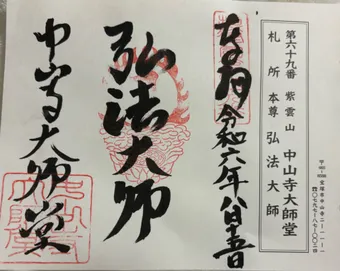 第六十九番 紫雲山 中山寺大師堂
札所本尊 弘法大師
奉拝 令和六年八月
弘法大師
中山寺大師堂